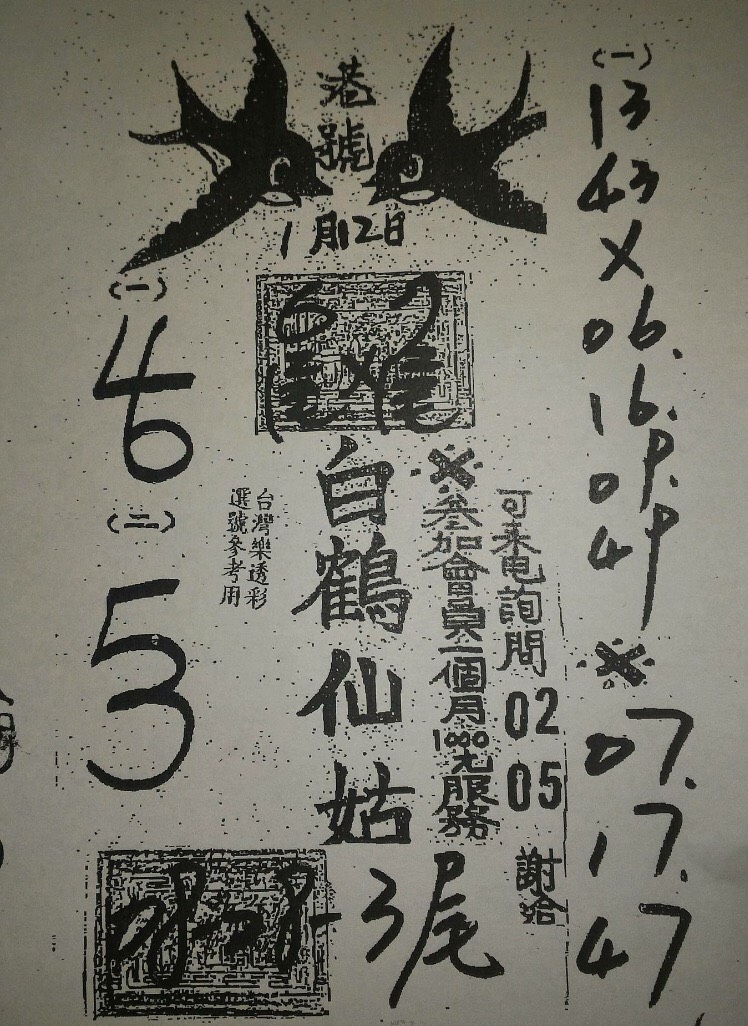 港號
1月12日
(一)
13
43
×
06.
16.
09.
49
※
07.
17.
47
可来电詢問 02 05 謝給
※参加會員一個月1000元服務
白鶴仙姑
台灣樂透彩
選號參考用
(一)
4
6
(二)
5
3
3尾